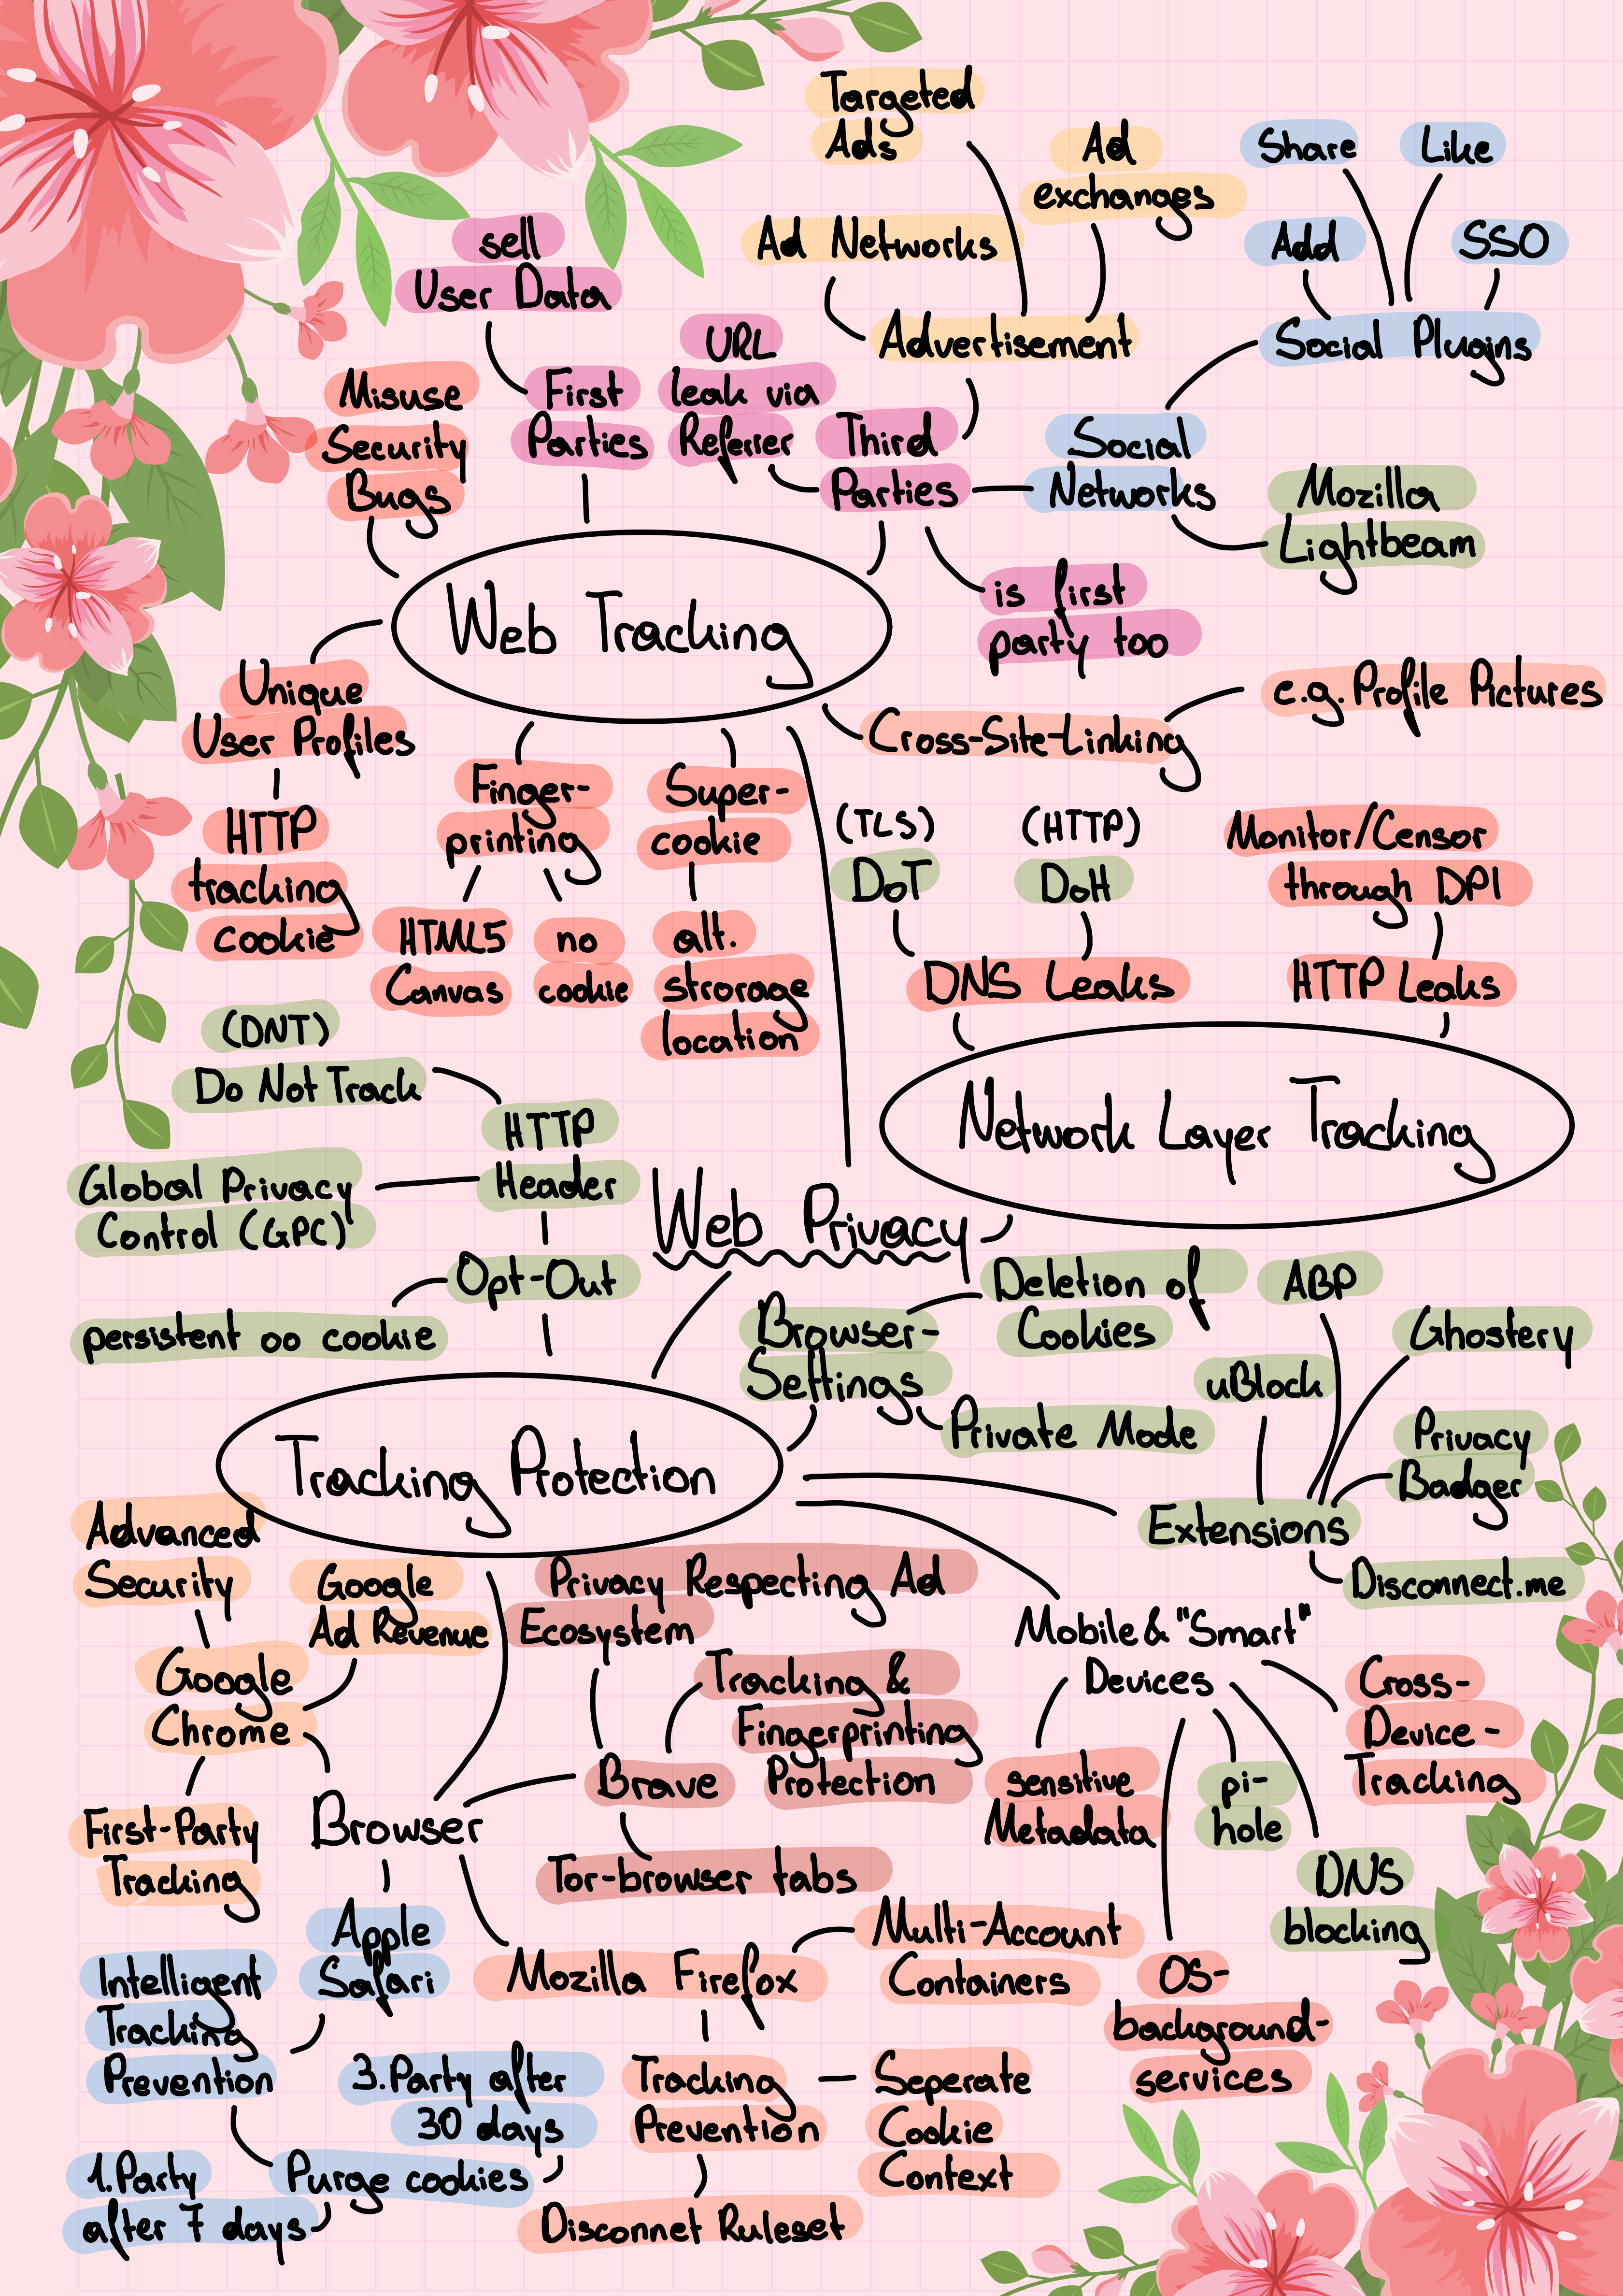 Targeted
Ads
Ad
exchanges
Share
Like
sell
User Data
Ad Networks
Add
SSO
URL
leak via
Referrer
Advertisement
Social Plugins
Misuse
Security
Bugs
First
Parties
Third
Parties
Social
Networks
Mozilla
Lightbeam
is first
party too
Web Tracking
Unique
User Profiles
e.g. Profile Pictures
Cross-Site-Linking
HTTP
tracking
cookie
Finger-
printing
Super-
cookie
(TLS)
DoT
(HTTP)
DoH
Monitor/Censor
through DPI
HTML5
Canvas
no
cookie
alt.
strorage
location
DNS Leaks
HTTP Leaks
(DNT)
Do Not Track
HTTP
Header
Network Layer Tracking
Global Privacy
Control (GPC)
Web Privacy
Opt-Out
persistent oo cookie
Browser-
Settings
Deletion of
Cookies
ABP
Ghostery
uBlock
Private Mode
Privacy
Badger
Tracking Protection
Extensions
Disconnect.me
Advanced
Security
Google
Ad Revenue
Privacy Respecting Ad
Ecosystem
Mobile & "Smart"
Devices
Google
Chrome
Tracking &
Fingerprinting
Protection
Cross-
Device-
Tracking
Brave
sensitive
Metadata
pi-
hole
First-Party
Tracking
Browser
Tor-browser tabs
DNS
blocking
Apple
Safari
Multi-Account
Containers
Intelligent
Tracking
Prevention
Mozilla Firefox
OS-
background-
services
3.Party after
30 days
Tracking
Prevention
Seperate
Cookie
Context
1.Party
after 7 days
Purge cookies
Disconnet Ruleset